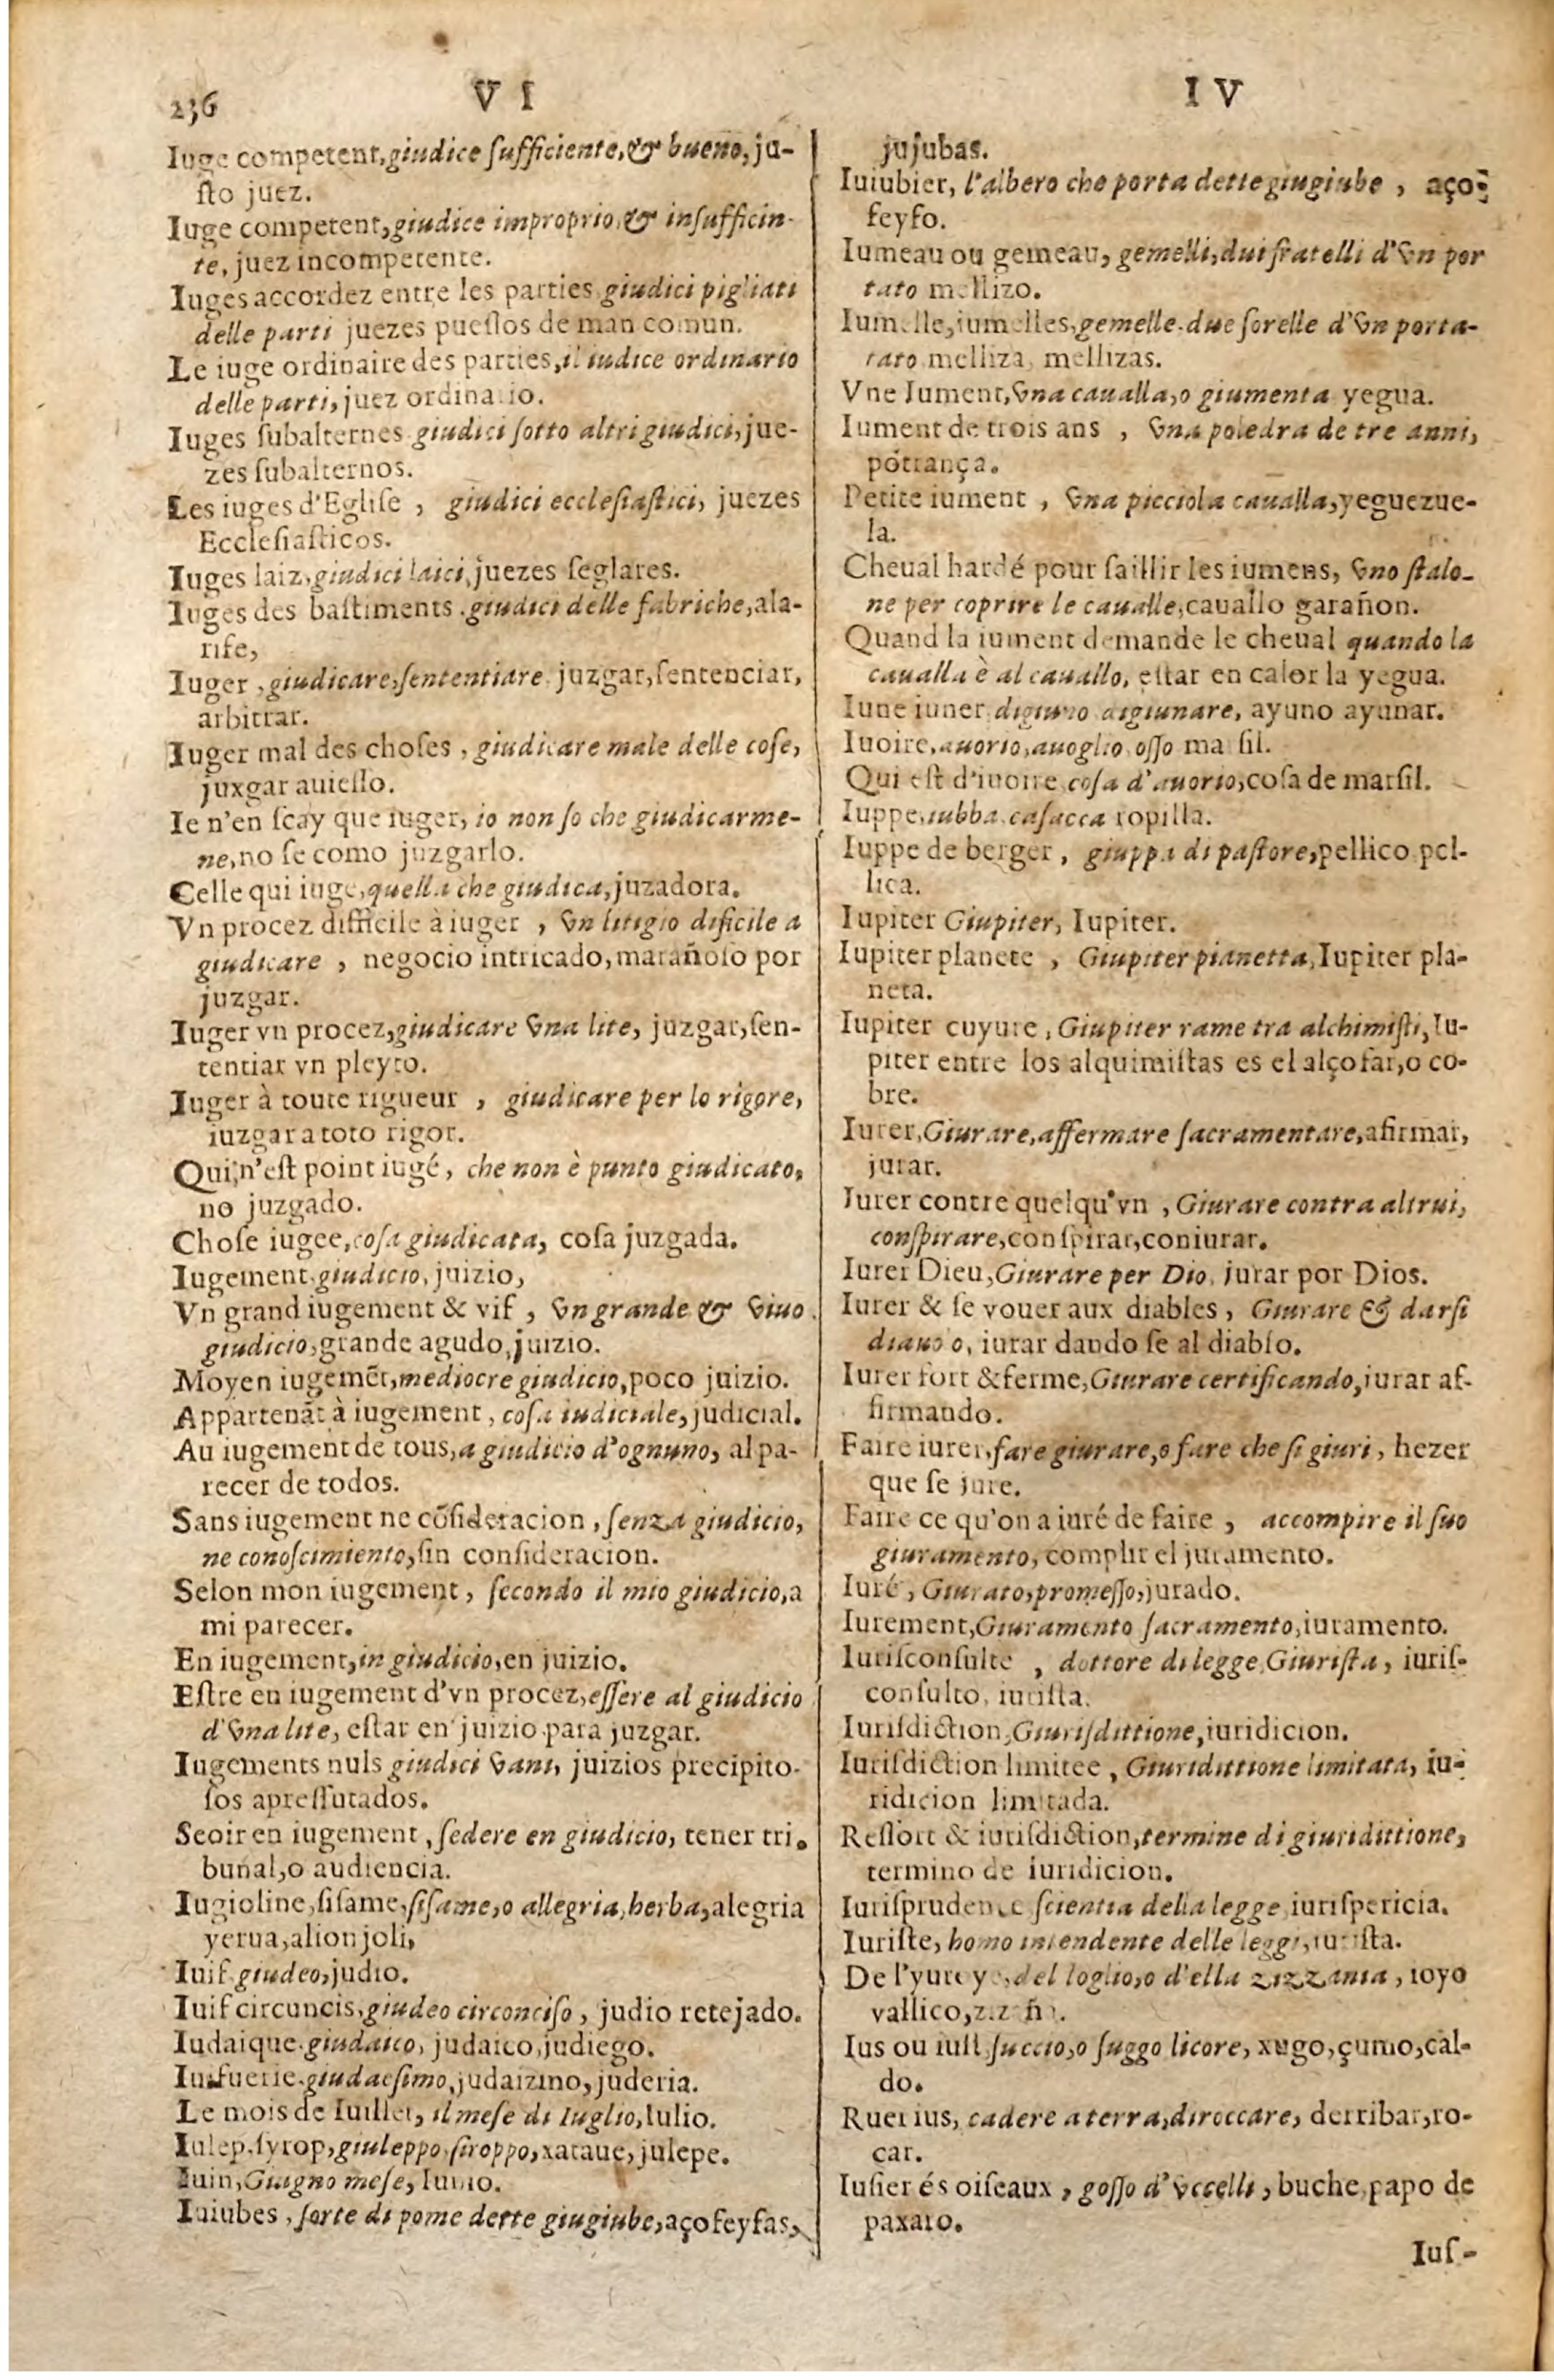 236
V I
I V
Iuge competent, giudice ſufficiente, & bueno, ju-
ſto juez.
Iuge competent, giudice improprio, & inſufficin-
te, juez incompetente.
Iuges accordez entre les parties giudici pigliati
delle parti juezes pueſtos de man comun.
Le iuge ordinaire des parties, il iudice ordinario
delle parti, juez ordinario.
Iuges ſubalternes giudici ſotto altri giudici, jue-
zes ſubalternos.
Les iuges d'Egliſe , giudici eccleſiaſtici, juezes
Eccleſiaſticos.
Iuges laiz, giudici laici, juezes ſeglares.
Iuges des baſtiments . giudici delle fabriche, ala-
rife,
Iuger , giudicare, ſententiare juzgar, ſentenciar,
arbitrar.
Iuger mal des choſes , giudicare male delle coſe,
juxgar auieſſo.
Ie n'en ſcay que iuger, io non ſo che giudicarme-
ne, no ſe como juzgarlo.
Celle qui iuge, quella che giudica, juzadora.
Vn procez difficile à iuger , vn litigio dificile a
giudicare , negocio intricado, marañoſo por
juzgar.
Iuger vn procez, giudicare vna lite, juzgar, ſen-
tentiar vn pleyto.
Iuger à toute rigueur , giudicare per lo rigore,
iuzgar a toto rigor.
Qui, n'eſt point iugé, che non è punto giudicato,
no juzgado.
Choſe iugee, coſa giudicata, coſa juzgada.
Iugement. giudicio, juizio,
Vn grand iugement & vif , vn grande & viuo
giudicio, grande agudo, juizio.
Moyen iugemẽt, mediocre giudicio, poco juizio.
Appartenãt à iugement , coſa iudiciale, judicial.
Au iugement de tous, a giudicio d'ognuno, al pa-
recer de todos.
Sans iugement ne cõſideracion , ſenza giudicio,
ne conoſcimiento, ſin conſideracion.
Selon mon iugement, ſecondo il mio giudicio, a
mi parecer.
En iugement, in giudicio, en juizio.
Eſtre en iugement d'vn procez, eſſere al giudicio
d'vna lite, eſtar en juizio para juzgar.
Iugements nuls giudici vani, juizios precipito-
ſos apreſſutados.
Seoir en iugement , ſedere en giudicio, tener tri.
bunal, o audiencia.
Iugioline, ſiſame, ſiſame, o allegria, herba, alegria
yerua, alionjoli,
Iuif giudeo, judio.
Iuif circuncis, giudeo circonciſo , judio retejado.
Iudaique. giudaico, judaico, judiego.
Iuifuerie. giudaeſimo, judaizmo, juderia.
Le mois de Iuillet, il meſe di luglio, Iulio.
Iulep. ſyrop, giuleppo, ſiroppo, xataue, julepe.
Iuin, Giugno meſe, Iunio.
Iuiubes , ſorte di pome dette giugiube, açofeyfas,
jujubas.
Iuiubier, l'albero che porta dette giugiube , aço-
feyfo.
Iumeau ou gemeau, gemelli, dui fratelli d'vn por
tato mellizo.
Iumelle, iumelles, gemelle. due ſorelle d'vn porta-
tato melliza, mellizas.
Vne Iument, vna caualla, o giumenta yegua.
Iument de trois ans , vna poledra de tre anni,
pótrança.
Petite iument , vna picciola caualla, yeguezue-
la.
Cheual hardé pour ſaillir les iumens, vno ſtalo-
ne per coprire le caualle, cauallo garañon.
Quand la iument demande le cheual quando la
caualla è al cauallo, eſtar en calor la yegua.
Iune iuner digiuno digiunare, ayuno ayunar.
Iuoire, auorio, auoglio oſſo marſil.
Qui eſt d'iuoire coſa d'auorio, coſa de marſil.
Iuppe, iubba, caſacca ropilla.
Iuppe de berger , giuppa di paſtore, pellico pel-
lica.
Iupiter Giupiter, Iupiter.
Iupiter planete , Giupiter pianetta, Iupiter pla-
neta.
Iupiter cuyure , Giupiter rame tra alchimiſti, Iu-
piter entre los alquimiſtas es el alçofar, o co-
bre.
Iurer, Giurare, affermare ſacramentare, afirmar,
jurar.
Iurer contre quelqu'vn , Giurare contra altrui,
conſpirare, conſpirar, coniurar.
Iurer Dieu, Giurare per Dio, jurar por Dios.
Iurer & ſe vouer aux diables , Giurare & darſi
diauolo, iurar dando ſe al diablo.
Iurer fort & ferme, Giurare certificando, iurar af-
firmando.
Faire iurer, fare giurare, o fare che ſi giuri , hezer
que ſe jure.
Faire ce qu'on a iuré de faire , accompire il ſuo
giuramento, complir el juramento.
Iuré , Giurato, promeſſo, jurado.
Iurement, Giuramento ſacramento, iuramento.
Iuriſconſulte , dottore di legge, Giuriſta, iuriſ-
conſulto, iuriſta.
Iuriſdiction, Giuriſdittione, iuridicion.
Iuriſdiction limitee , Giuridittione limitata, iu-
ridicion limitada.
Reſſort & iuriſdiction, termine di giuridittione,
termino de iuridicion.
Iuriſprudence ſcientia della legge iuriſpericia.
Iuriſte, homo intendente delle leggi, iuriſta.
De l'yuroye, del loglio, o d'ella zizzania , ioyo
vallico,
Ius ou iuſt ſuccio, o ſuggo licore, xugo, çumo, cal-
do.
Ruer ius, cadere a terra, diroccare, derribar, ro-
car.
Iuſier és oiſeaux , goſſo d'vccelli , buche, papo de
paxaro.
Iuſ-